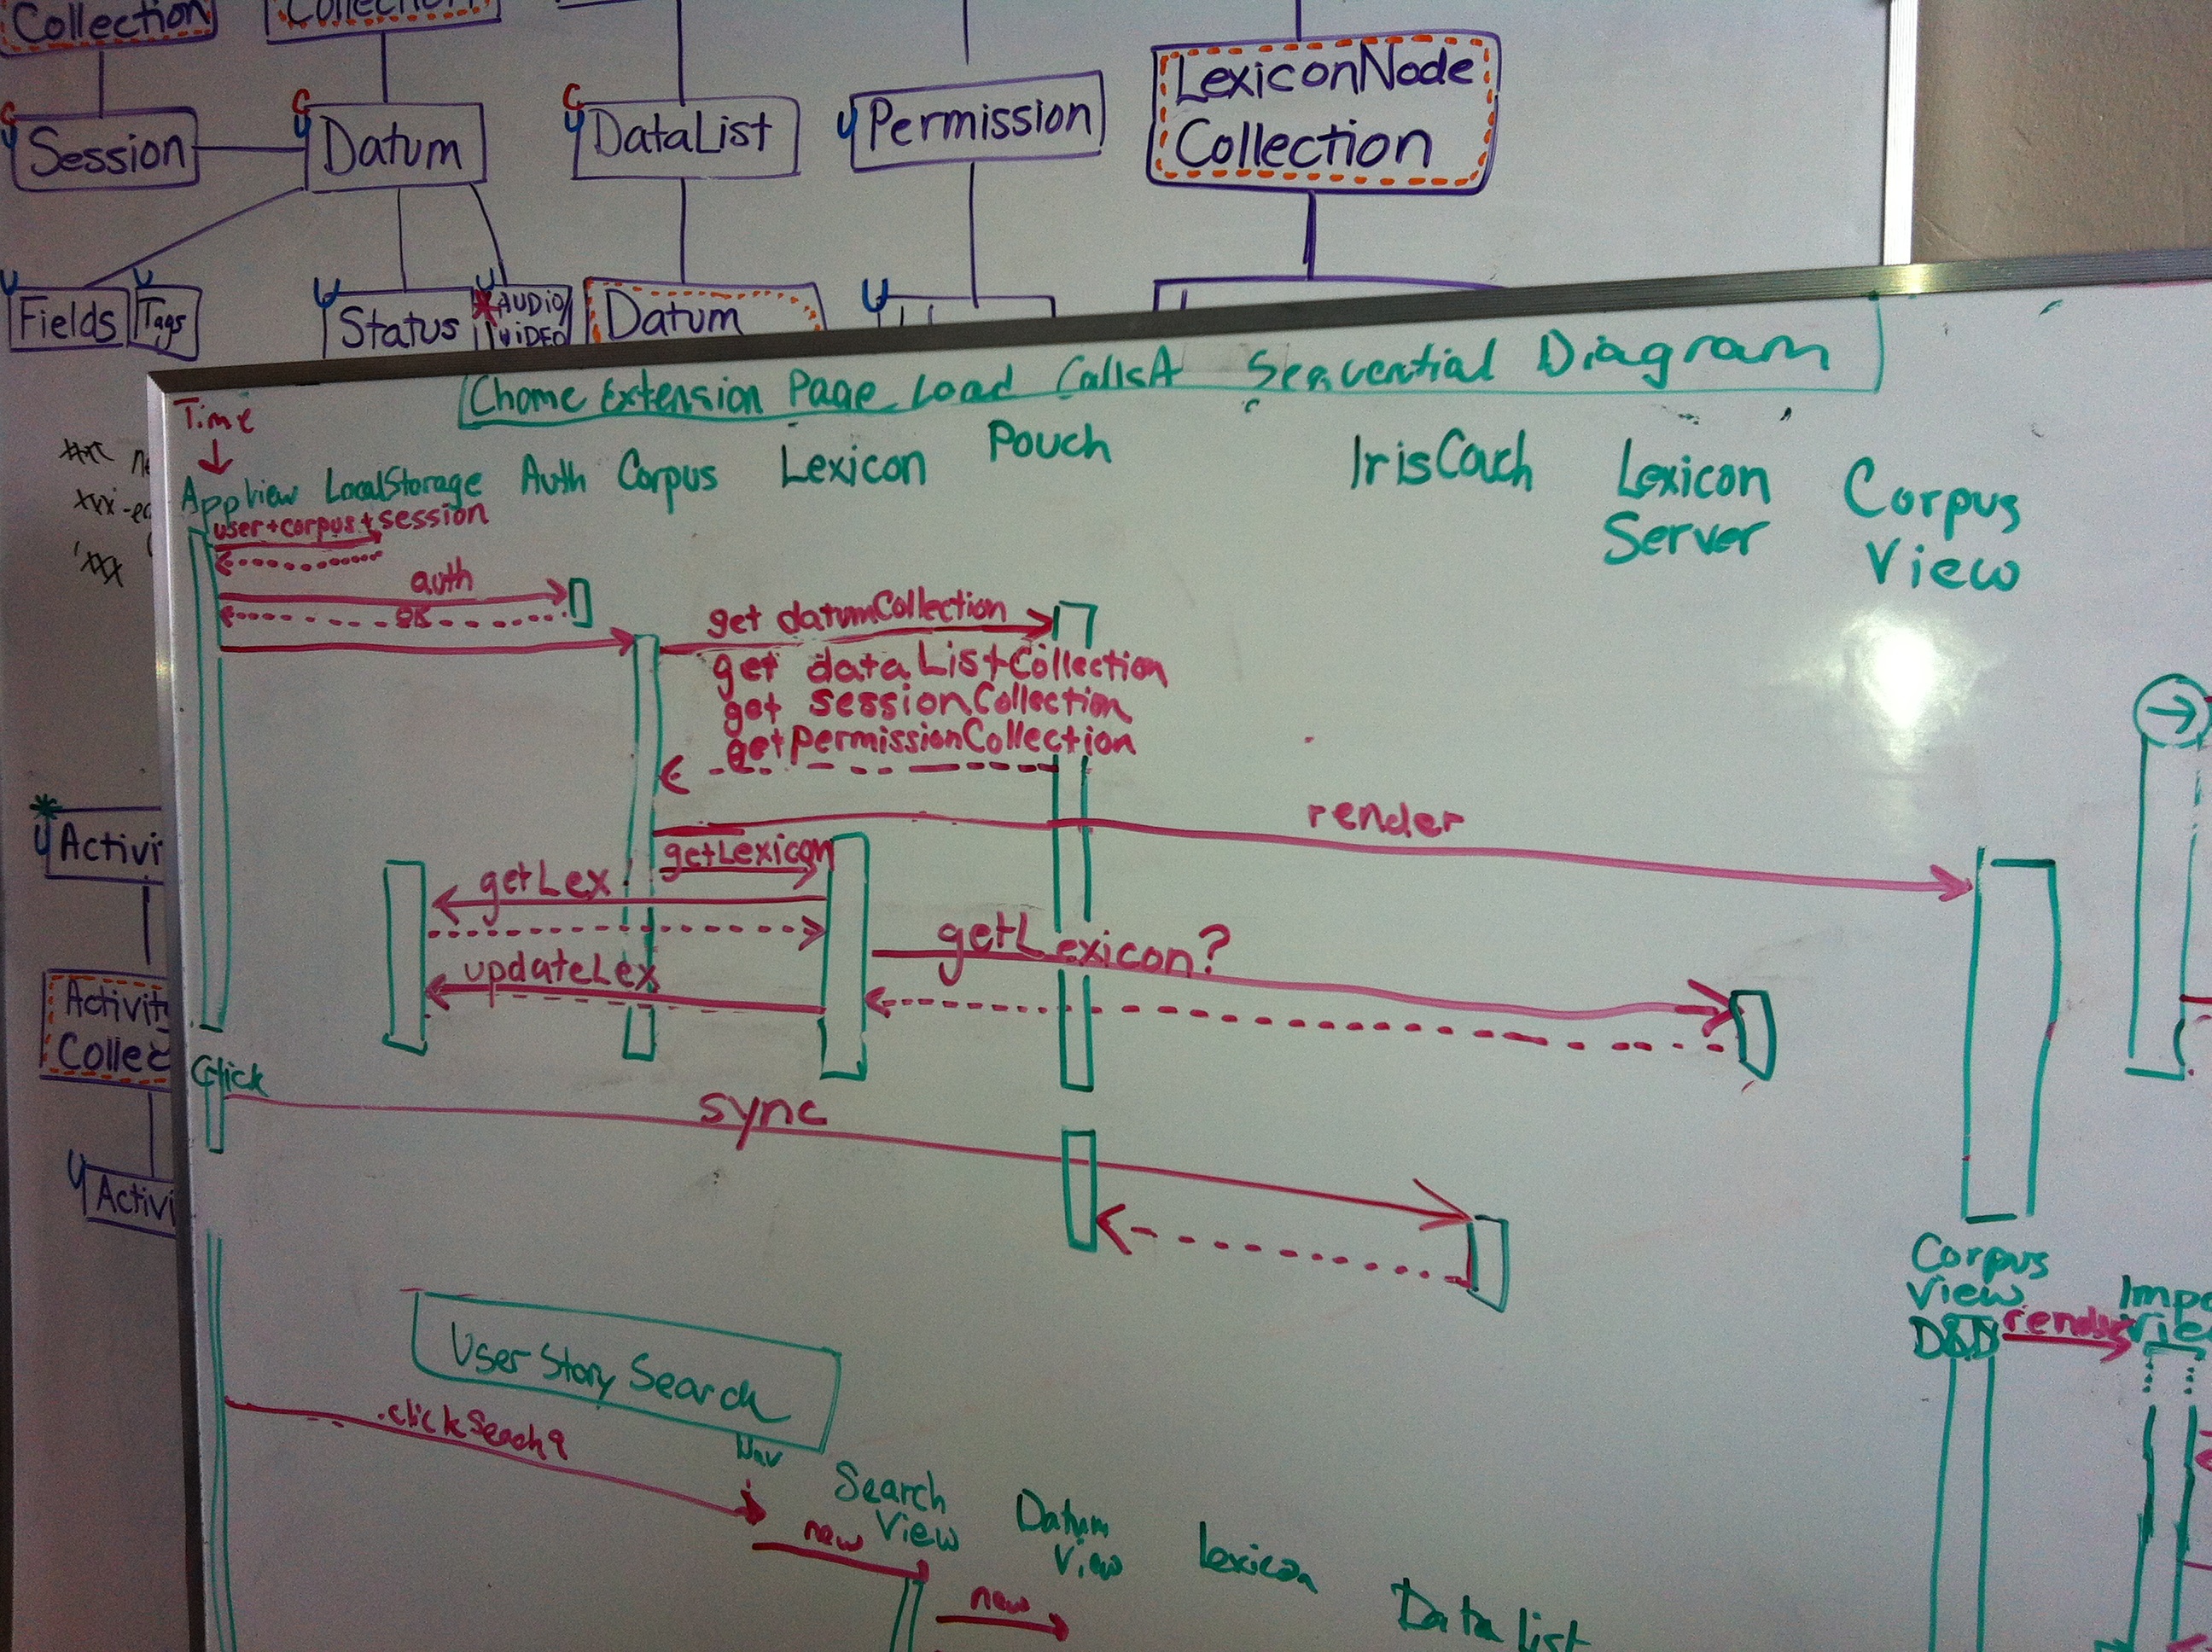 Collection
Collection
LexiconNode
Collection
Session
Datum
DataList
Permission
Fields
Tags
Status
AUDIO/
VIDEO
Datum
Chome Extension Page Load Calls A Sequential Diagram
Time
AppView LocalStorage Auth Corpus Lexicon Pouch IrisCouch Lexicon
Server Corpus
View
user+corpus+session
auth
OK
get datumCollection
get dataListCollection
get sessionCollection
getPermissionCollection
render
getLexicon
getLex
getLexicon?
updateLex
Click
sync
Activi
Activity
Collec
Activi
User Story Search
Corpus
View
D&D
render
Impo
Vie
.clickSearch
Nav
Search
View
Datum
View
Lexicon
Data list
new
new